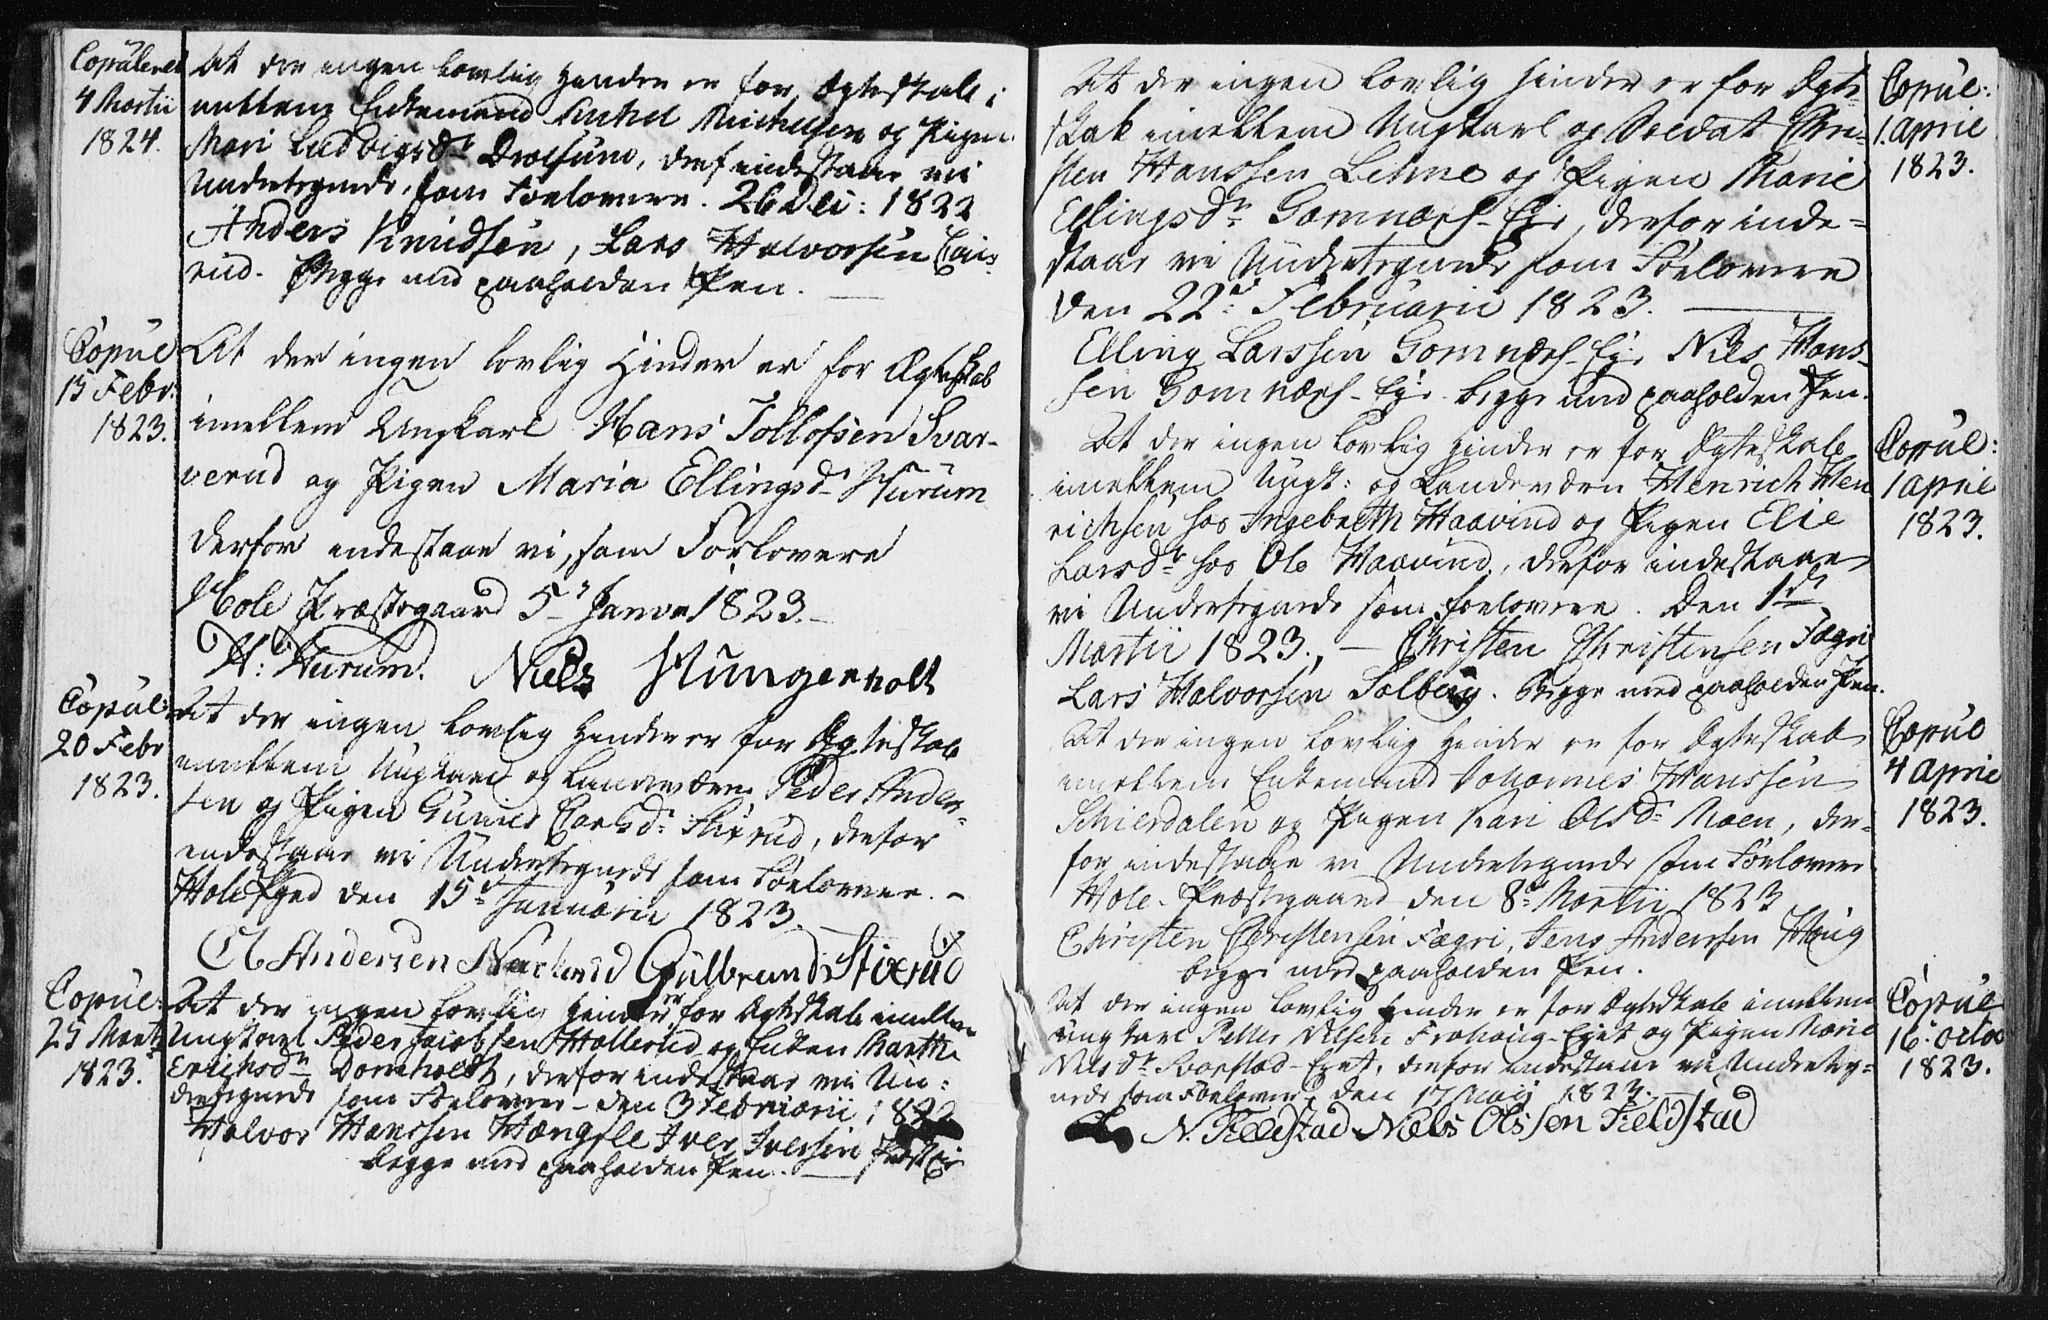 Copuleret
4 Martii
1824.
At der ingen lovlig Hinder er for Ægteskab i
mellem Enkemand Michel Michelsen og Pigen
Mari Ludvigsdr Drolsum, derf indestaae vi
Undertegnede, som Forlovere. 26 Dec: 1822
Anders Knudsen, Lars Halvorsen
rud. Begge med paaholden Pen.
Copul
15 Febr:
1823.
At der ingen lovlig Hinder er for Ægteskab
imellem Ungkarl Hans Tollofsen Svar-
verud og Pigen Maria Ellingsdr Hurum
derfor indestaae vi, som Forlovere
Hole Præstegaard 5 Januar 1823.
H: Hurum. Niels Hungerholt
Copul:
20 Febr
1823.
At der ingen lovlig Hinder er for Ægteskab
imellem Ungkarl og Landeværn Peder Ander-
sen og Pigen Gunild Carlsdr Stixrud, derfor
indestaae vi Undertegnede som Forlovere. -
Hole Pgrd den 15d Januarii 1823.
Ol Andersen Gulbrand Stixrud
Copul:
25 Marti
1823.
At der ingen lovlig Hinder er for Ægteskab imellem
Ungkarl Peder Jacobsen Hollerud og Enken Marthe
Erichsdr Domholdt, derfor indestaae vi Un-
dertegnede som Forlovere - den 3 Februarii 1822
Halvor Hanssen Hængsle Iver Iversen
begge med paaholden Pen.
At der ingen lovlig Hinder er for Ægte-
skab imellem Ungkarl og Soldat Chri-
sten Hanssen Lehne og Pigen Marie
Ellingsdr Gomnæss-Eje, derfor inde-
staae vi Undertegnede som Forlovere
den 22d Februarii 1823.
Elling Larssen Gomnæss-Eje Niels Hans-
sen Gomnæss-Eje begge med paaholden Pen.
Copul:
1. April
1823.
At der ingen lovlig Hinder er for Ægteskab
imellem Ungk: og Landeværn Henrich Hen
richsen hos Ingebreth Haavind og Pigen Elie
Larsdr hos Ole Haavind, derfor indestaae
vi Undertegnede som Forlovere. Den 1d
Martii 1823. - Christen Christensen Fægri
Lars Halvorsen Solberg. Begge med paaholden Pen.
Copul:
1 April
1823.
At der ingen lovlig Hinder er for Ægteskab
imellem Enkemand Johannes Hanssen
Schierdalen og Pigen Kari Olsdr Moen, der-
for indestaae vi Undertegnede som Forlovere
Hole-Præstegaard den 8d Martii 1823
Christen Christensen Fægri, Jens Anderssen Houg
begge med paaholden Pen.
Copul
4 April
1823.
At der ingen lovlig Hinder er for Ægteskab imellem
Ungkarl Petter Nilsen Frohoug-Ejet og Pigen Marie
Nielsdr Svarstad-Ejet, derfor indestaae vi Underteg-
nede som Forlovere, den 17 Maij 1823.
N. Fieldstad Niels Olssen Fieldstad
Copul
16. Octob
1823.